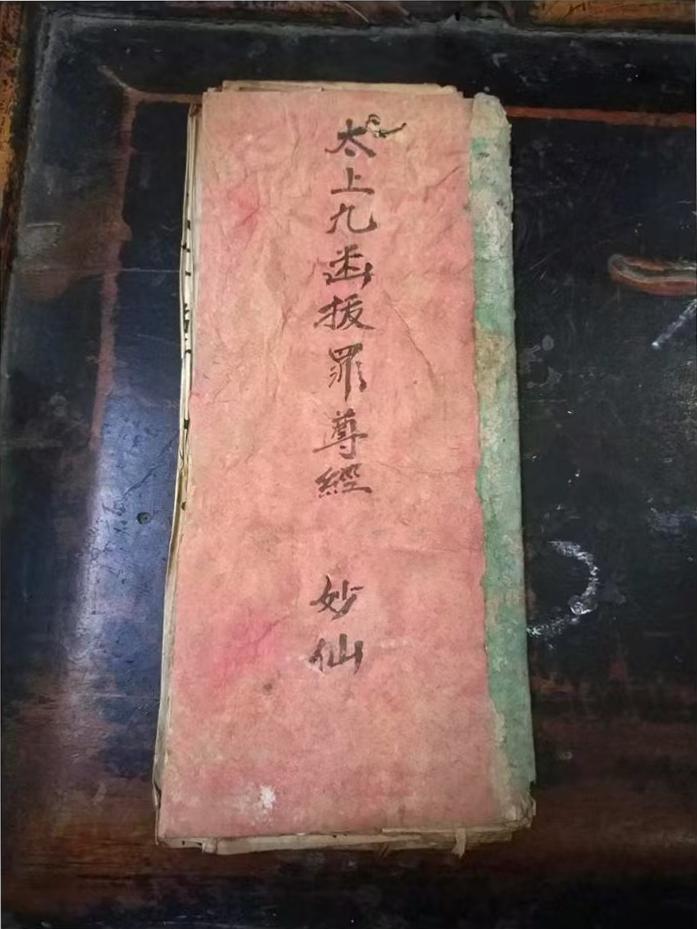 太上九幽拔罪尊經 妙仙